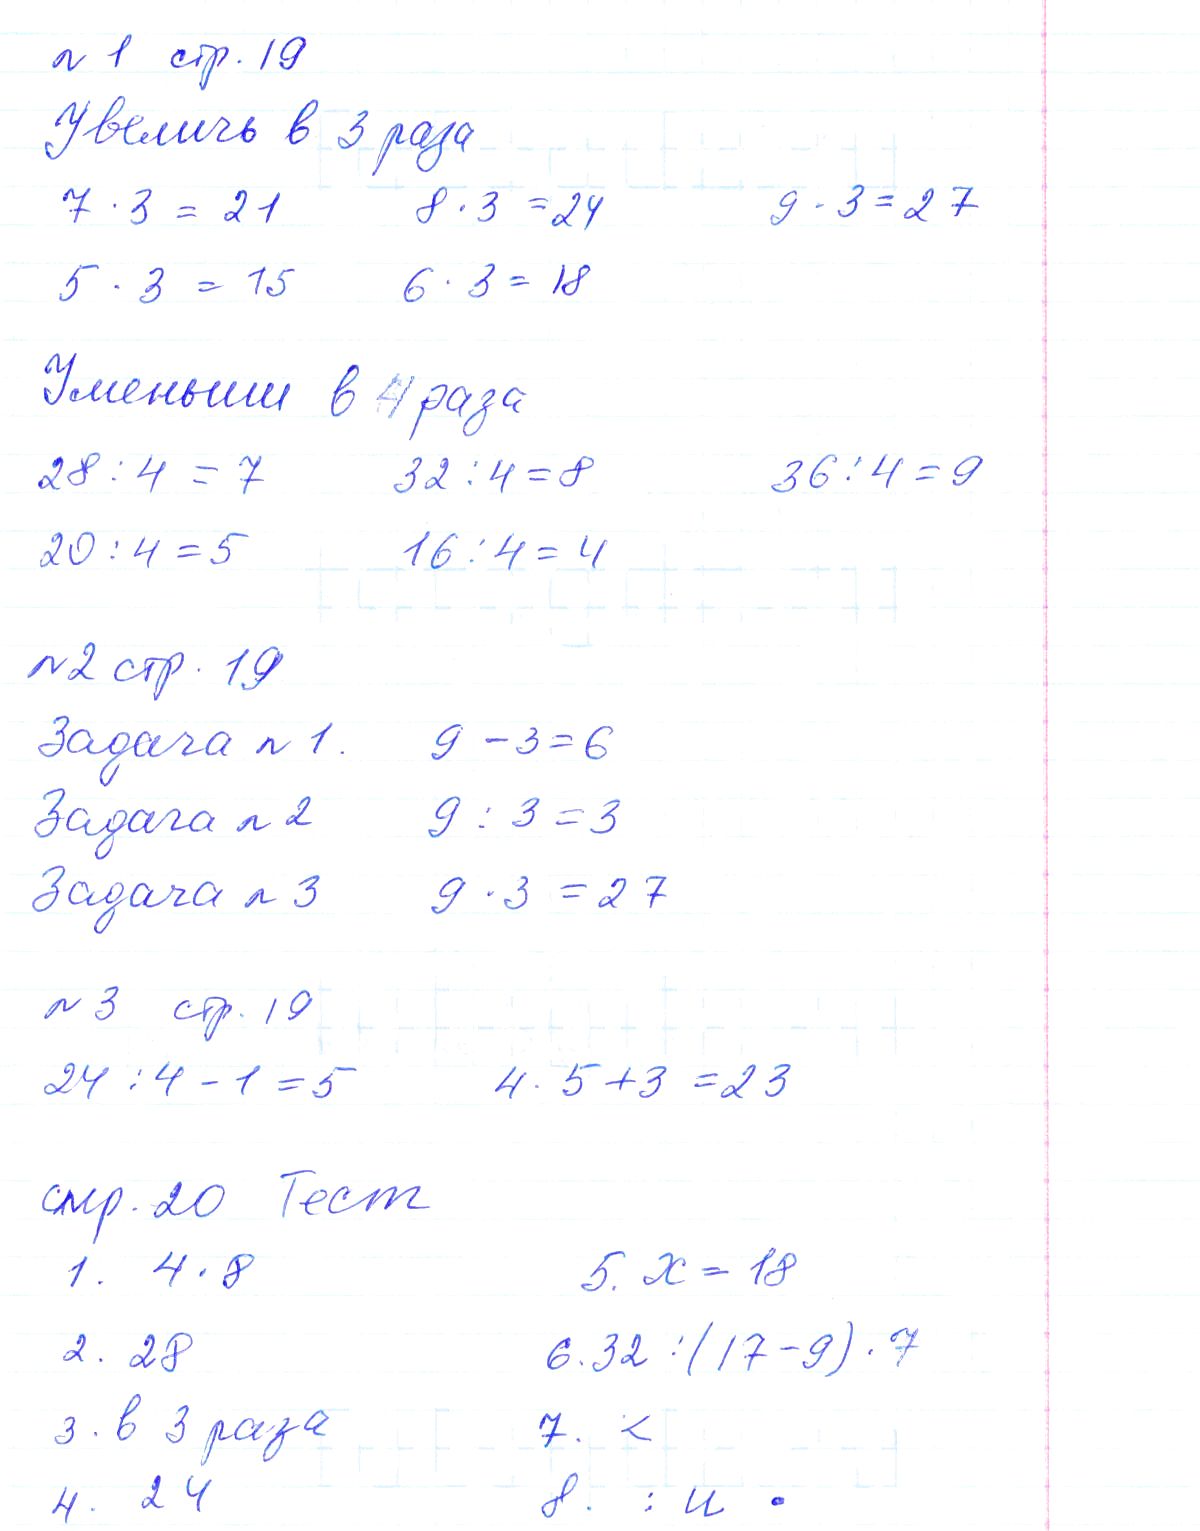 № 1 стр. 19
Увеличь в 3 раза
7 · 3 = 21 8 · 3 = 24 9 · 3 = 27
5 · 3 = 15 6 · 3 = 18
Уменьши в 4 раза
28 : 4 = 7 32 : 4 = 8 36 : 4 = 9
20 : 4 = 5 16 : 4 = 4
№2 стр. 19
Задача № 1. 9 - 3 = 6
Задача № 2 9 : 3 = 3
Задача № 3 9 · 3 = 27
№ 3 стр. 19
24 : 4 - 1 = 5 4 · 5 + 3 = 23
стр. 20 Тест
1. 4 · 8 5. х = 18
2. 28 6. 32 : (17 - 9) · 7
3. в 3 раза 7. <
4. 24 8. : и ·